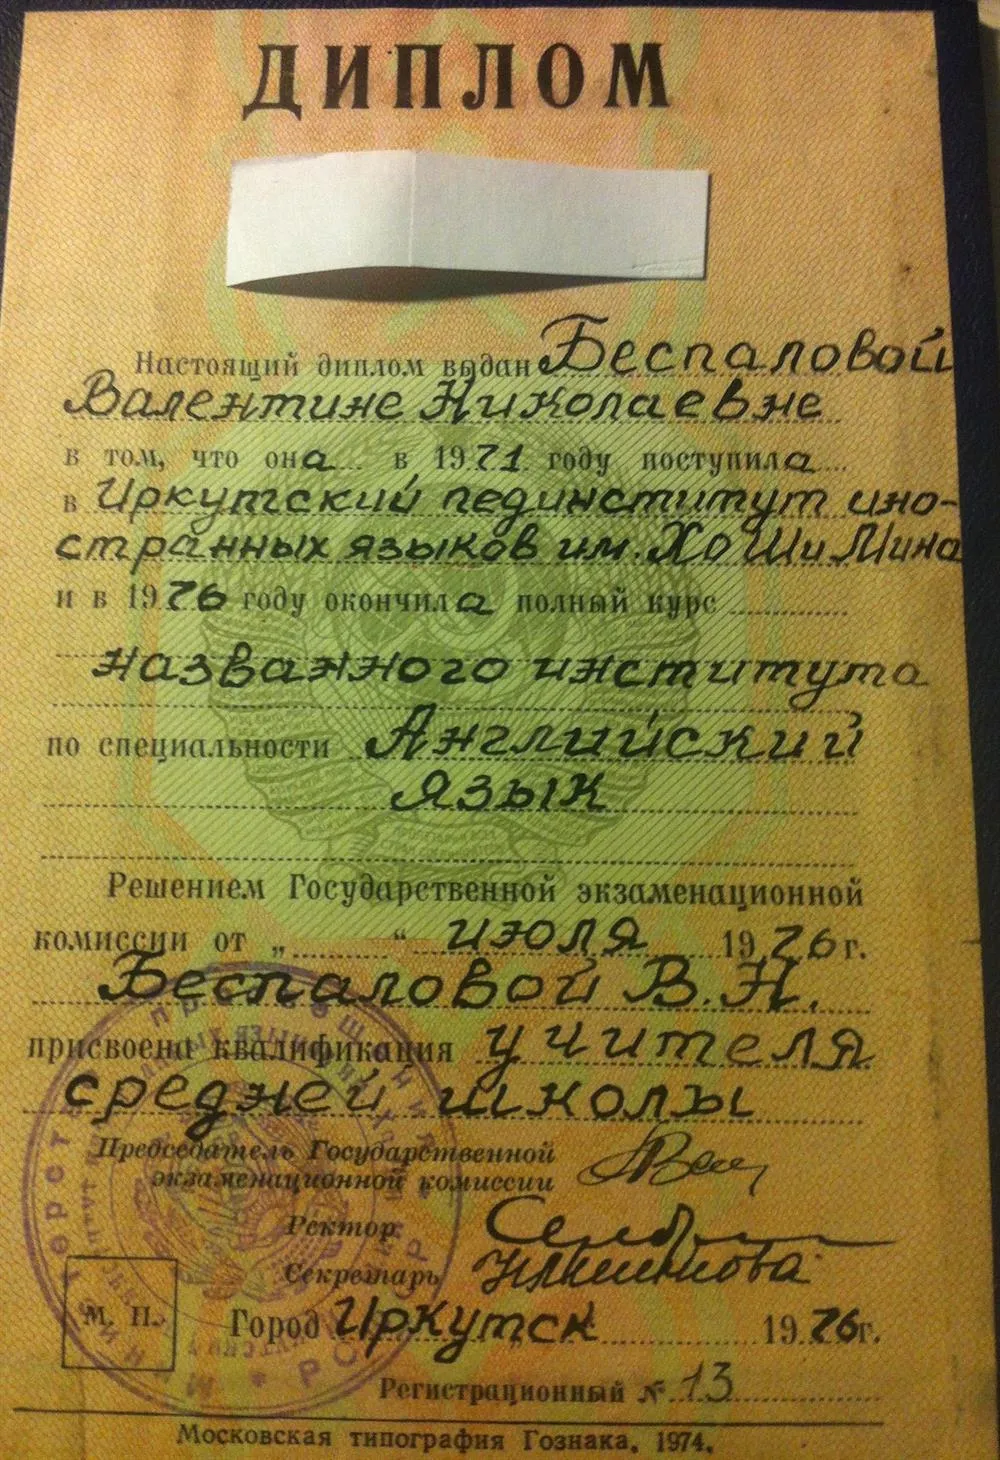 ДИПЛОМ
Настоящий диплом выдан Беспаловой
Валентине Николаевне
в том, что она в 1971 году поступила
в Иркутский пединститут ино-
странных языков им. Хо Ши Мина
и в 1976 году окончила полный курс
названного института
по специальности Английский
язык
Решением Государственной экзаменационной
комиссии от „ “ июля 1976 г.
Беспаловой В.Н.
присвоена квалификация учителя
средней школы
Председатель Государственной
экзаменационной комиссии
Ректор
Секретарь
М. П.
Город Иркутск 1976г.
Регистрационный № 13
Московская типография Гознака. 1974.